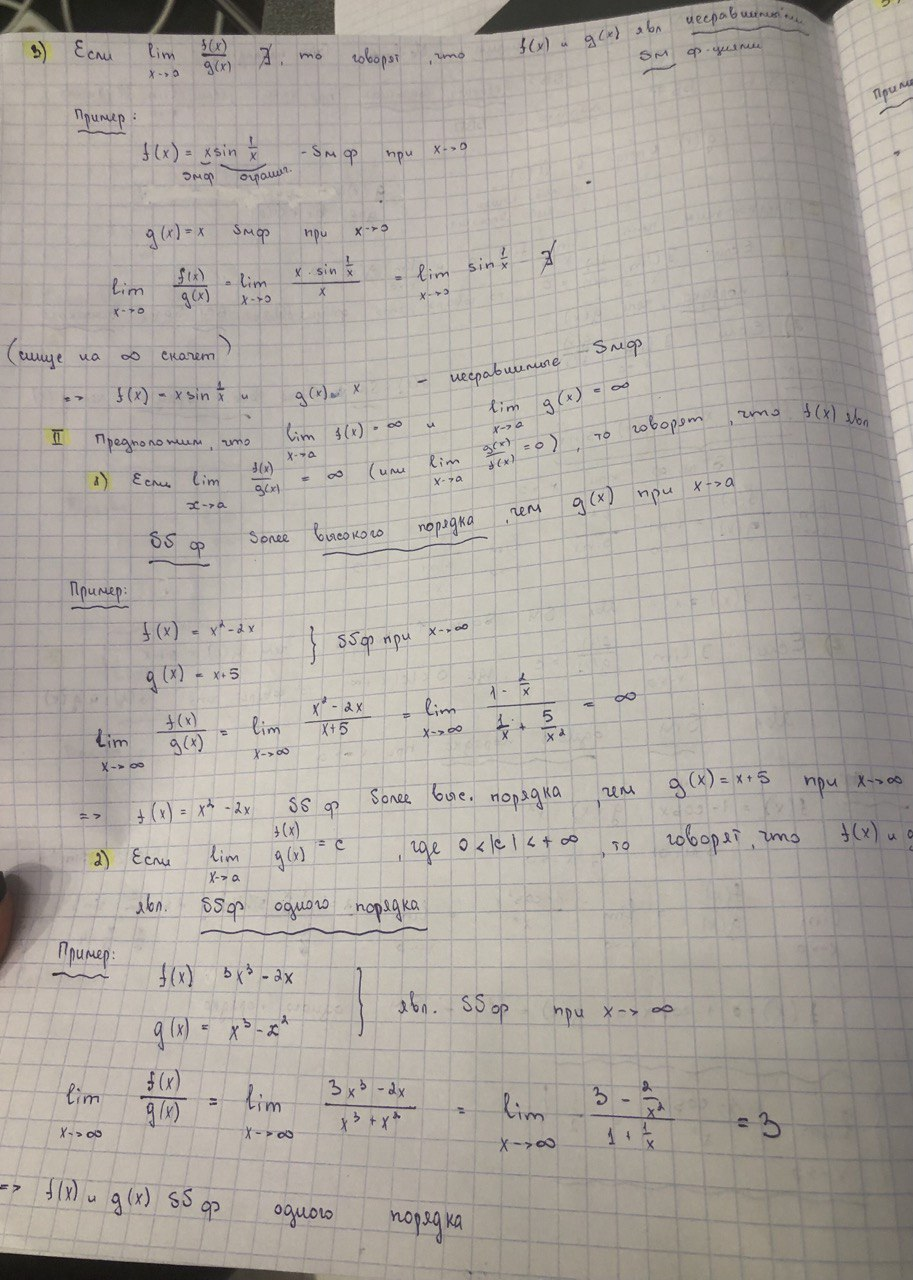 3) Если lim x→0 f(x)/g(x) ∄, то говорят, что f(x) и g(x) явл несравнимыми
бм ф-циями
Пример:
f(x) = x sin 1/x - бмф при x→0
бмф огранич.
g(x) = x бмф при x→0
lim x→0 f(x)/g(x) = lim x→0 (x · sin 1/x)/x = lim x→0 sin 1/x ∄
на ∞ скачет)
=> f(x) = x sin 1/x и g(x) = x - несравнимые бмф
II Предположим, что lim x→a f(x) = ∞ и lim x→a g(x) = ∞
1) Если lim x→a f(x)/g(x) = ∞ (или lim x→a g(x)/f(x) = 0), то говорят, что f(x) явл
ббф более высокого порядка, чем g(x) при x→a
Пример:
f(x) = x² - 2x } ббф при x→∞
g(x) = x+5
lim x→∞ f(x)/g(x) = lim x→∞ (x² - 2x)/(x+5) = lim x→∞ (1 - 2/x)/(1/x + 5/x²) = ∞
=> f(x) = x² - 2x ббф более выс. порядка, чем g(x) = x+5 при x→∞
2) Если lim x→a f(x)/g(x) = c, где 0<|c|<+∞, то говорят, что f(x) и g
явл. ббф одного порядка
Пример:
f(x) 3x³ - 2x } явл. ббф при x→∞
g(x) = x³ - x²
lim x→∞ f(x)/g(x) = lim x→∞ (3x³ - 2x)/(x³ + x²) = lim x→∞ (3 - 2/x²)/(1 + 1/x) = 3
=> f(x) и g(x) ббф одного порядка
Пример